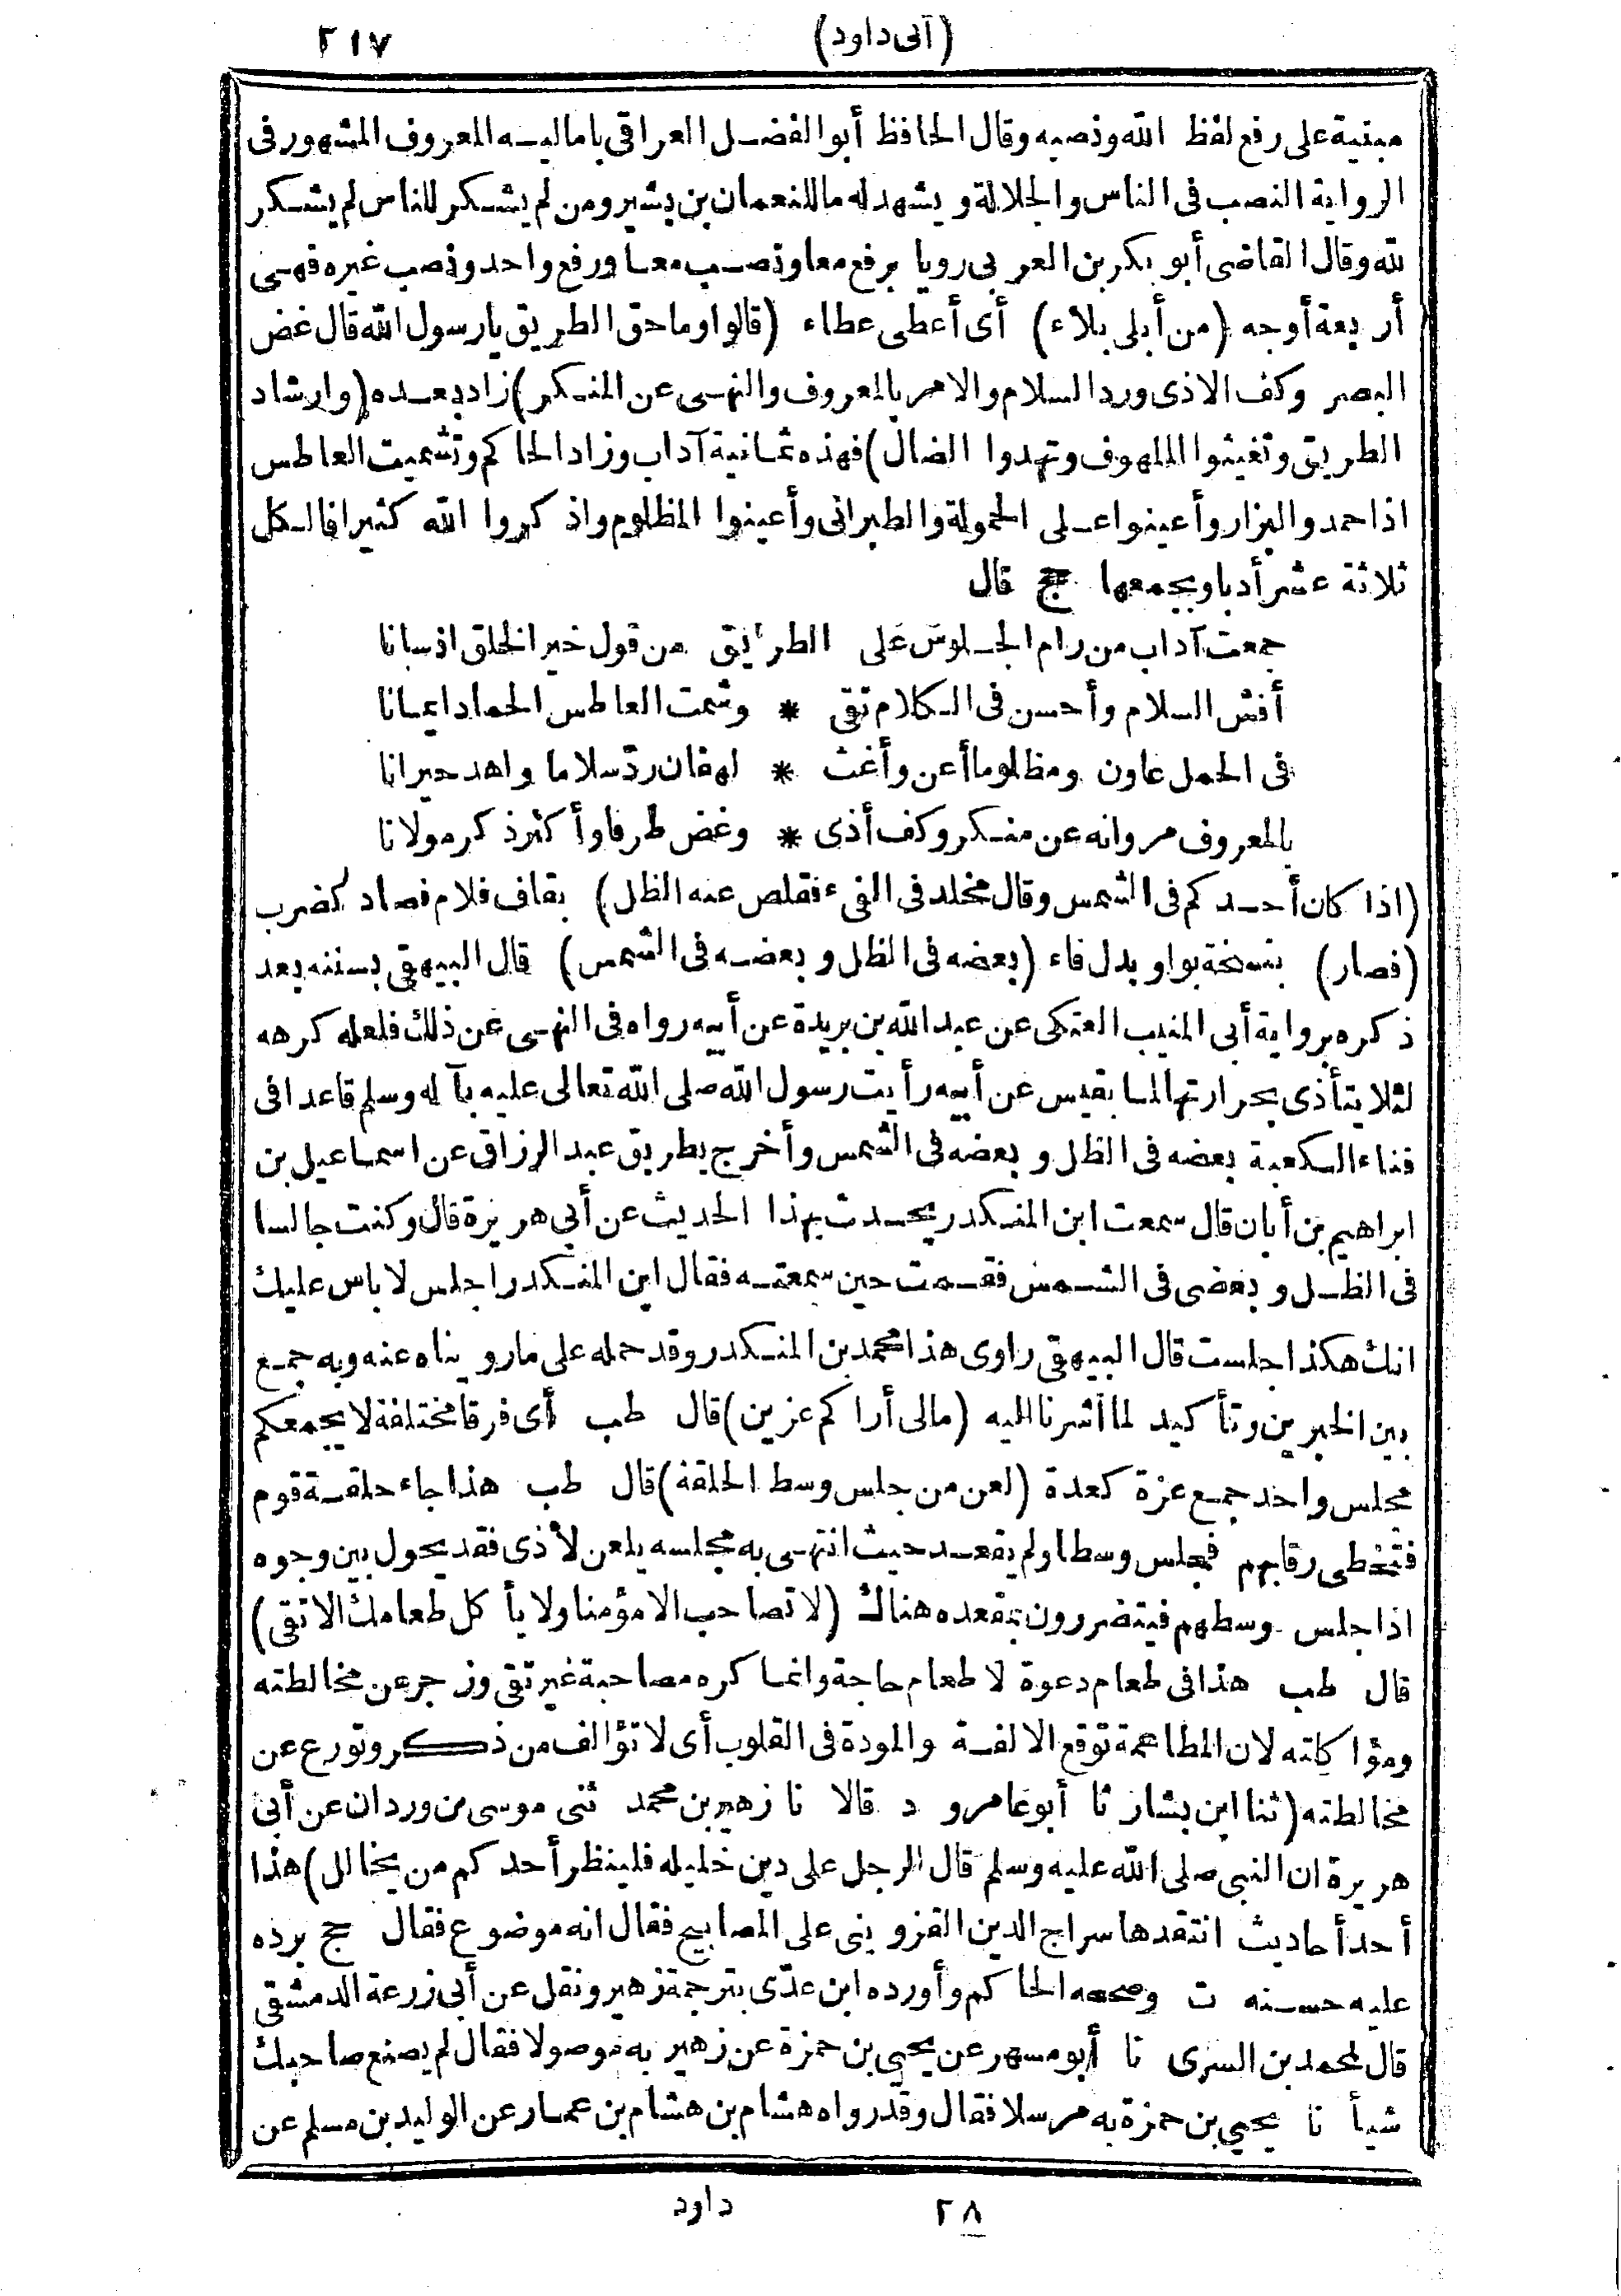 (أبى داود) ٢١٧
مبنية على رفع لفظ الله ونصبه وقال الحافظ أبو الفضل العراقى باماليه المعروف المشهور فى
الرواية النصب فى الناس والجلالة ويشهد له ما للنعمان بن بشير ومن لم يشكر للناس لم يشكر
لله وقال القاضى أبو بكر بن العربى رويا برفع معا ونصب معا ورفع واحد ونصب غيره فهى
أربعة أوجه (من أبلى بلاء) أى أعطى عطاء (قالوا وما حق الطريق يا رسول الله قال غض
البصر وكف الاذى ورد السلام والامر بالمعروف والنهى عن المنكر) زاد بعده (وارشاد
الطريق وتغيثوا الملهوف وتهدوا الضال) فهذه ثمانية آداب وزاد الحاكم وتشميت العاطس
اذا حمد والبزار وأعينوا على الحمولة والطبرانى وأعينوا المظلوم واذكروا الله كثيرا فالكل
ثلاثة عشر أدبا ويجمعها حج قال
جمعت آداب من رام الجلوس على الطريق من قول خير الخلق انسانا
أفش السلام وأحسن فى الكلام تقى * وشمت العاطس الحماد ايمانا
فى الحمل عاون ومظلوما أعن وأغث * لهفان ردّ سلاما واهد حيرانا
بالمعروف مر وانه عن منكر وكف أذى * وغض طرفا وأكثر ذكر مولانا
(اذا كان أحدكم فى الشمس وقال مخلد فى الفىء فقلص عنه الظل) بقاف فلام فصاد كضرب
(فصار) بنسخة بواو بدل فاء (بعضه فى الظل وبعضه فى الشمس) قال البيهقى بسننه بعد
ذكره برواية أبى المنيب العتكى عن عبد الله بن بريدة عن أبيه رواه فى النهى عن ذلك فلعله كرهه
لئلا يتأذى بحرارتها لما بقيس عن أبيه رأيت رسول الله صلى الله تعالى عليه بآله وسلم قاعدا فى
فناء الكعبة بعضه فى الظل وبعضه فى الشمس وأخرج بطريق عبد الرزاق عن اسماعيل بن
ابراهيم بن أبان قال سمعت ابن المنكدر يحدث بهذا الحديث عن أبى هريرة قال وكنت جالسا
فى الظل وبعضى فى الشمس فقمت حين سمعته فقال ابن المنكدر اجلس لا باس عليك
انك هكذا جلست قال البيهقى راوى هذا محمد بن المنكدر وقد حمله على ما رويناه عنه وبه جمع
بين الخبرين وتأكيد لما أشرنا اليه (مالى أراكم عزين) قال طب أى فرقا مختلفة لا يجمعكم
مجلس واحد جمع عزة كعدة (لعن من جلس وسط الحلقة) قال طب هذا جاء حلقة قوم
فتخطى رقابهم فجلس وسطا ولم يقعد حيث انتهى به مجلسه يلعن لأذى فقد يحول بين وجوه
اذا جلس وسطهم فيتضررون بمقعده هناك (لا تصاحب الا مؤمنا ولا يأكل طعامك الا تقى)
قال طب هذا فى طعام دعوة لا طعام حاجة وانما كره مصاحبة غير تقى وزجر عن مخالطته
ومؤاكلته لان المطاعمة توقع الالفة والمودة فى القلوب أى لا تؤالف من ذكر وتورع عن
مخالطته (ثنا ابن بشار نا أبو عامر و د قالا نا زهير بن محمد ثنى موسى بن وردان عن أبى
هريرة ان النبى صلى الله عليه وسلم قال الرجل على دين خليله فلينظر أحدكم من يخالل) هذا
أحد أحاديث انتقدها سراج الدين القزوينى على المصابيح فقال انه موضوع فقال حج برده
عليه حسنه ت وصححه الحاكم وأورده ابن عدّى بترجمة زهير ونقل عن أبى زرعة الدمشقى
قال لمحمد بن السرى نا أبو مسهر عن يحيى بن حمزة عن زهير به موصولا فقال لم يصنع صاحبك
شيأ نا يحيى بن حمزة به مرسلا فقال وقد رواه هشام بن هشام بن عمار عن الوليد بن مسلم عن
٢٨ داود